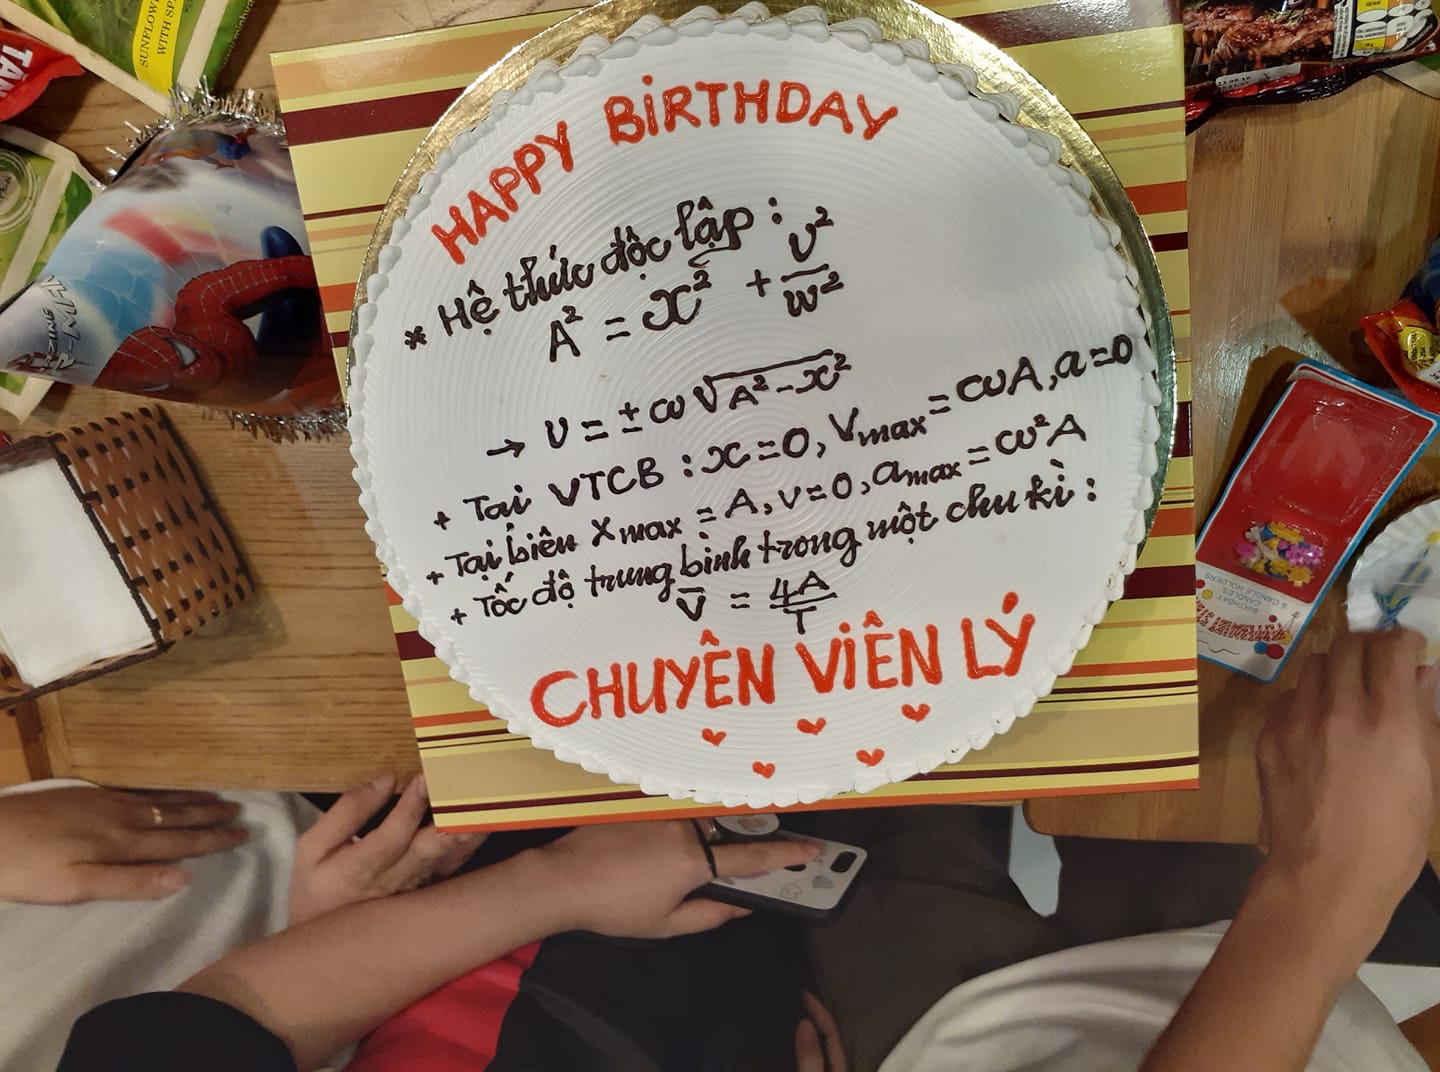 HAPPY BIRTHDAY
* Hệ thức độc lập :
A² = x² + v²/w²
→ v = ± ω√A² - x²
+ Tại VTCB : x = 0, Vmax = ωA, a = 0
+ Tại biên Xmax = A, v = 0, amax = ω²A
+ Tốc độ trung bình trong một chu kì :
v̄ = 4A/T
CHUYÊN VIÊN LÝ
SUNFLOW
WITH SP
TÂN
BIRTHDAY
CANDLES
& CANDLE HOLDERS